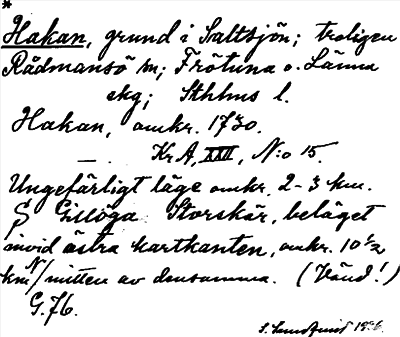 *
Hakan, grund i Saltsjön; troligen
Rådmansö sn; Frötuna o. Länna
skg; Sthlms l.
Hakan, omkr. 1730.
— . Kr A, XXII, N:o 15.
Ungefärligt läge omkr. 2-3 km.
S Gillöga Storskär, beläget
invid östra kartkanten, omkr. 10 1/2
km N/mitten av densamma. (Vänd!)
G. 76.